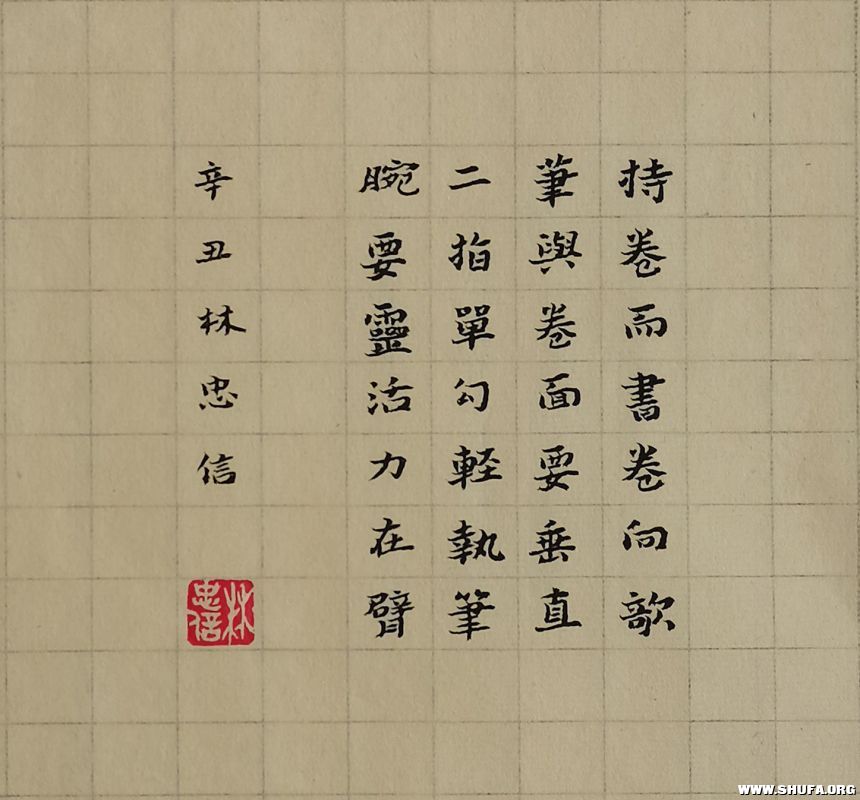 持卷而書卷向歌
筆與卷面要垂直
二指單勾軽執筆
腕要靈活力在臂
辛丑林忠信
林忠信
WWW.SHUFA.ORG